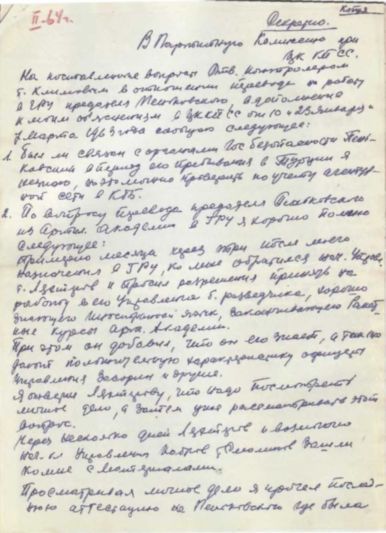 Копия
II-64г.
Секретно.
В Партийную Комиссию при
ЦК КПСС.
На поставленные вопросы Отв. контролером
т. Климовым в отношении перевода на работу
в ГРУ предателя Пеньковского, в дополнение
к моим объяснениям в ЦК КПСС от 10 и 25 января и
7 марта 1963 года сообщаю следующее:
1. Был ли связан с органами Гос безопасности Пень-
ковский в период его пребывания в Турции я
не знаю, возможно проверить по учету агентур-
ной сети в КГБ.
2. По вопросу перевода предателя Пеньковского
из Артил. Академии в ГРУ я хорошо помню
следующее:
Примерно месяца через три после моего
назначения в ГРУ, ко мне обратился нач. Управ.
т. и просил разрешения принять на
работу в его Управление б. разведчика, хорошо
знающего иностранный язык, заканчивающего Ракет-
ные курсы арт. Академии.
При этом он добавил, что он его знает, а также
дают положительную характеристику офицеры
Управления и другие.
Я ответил, что надо посмотреть
личное дело, а затем уже рассматривать этот
вопрос.
Через несколько дней и
нач-к Управления кадров зашли
ко мне с материалами.
Просматривая личное дело я прочел послед-
нюю аттестацию на Пеньковского где была